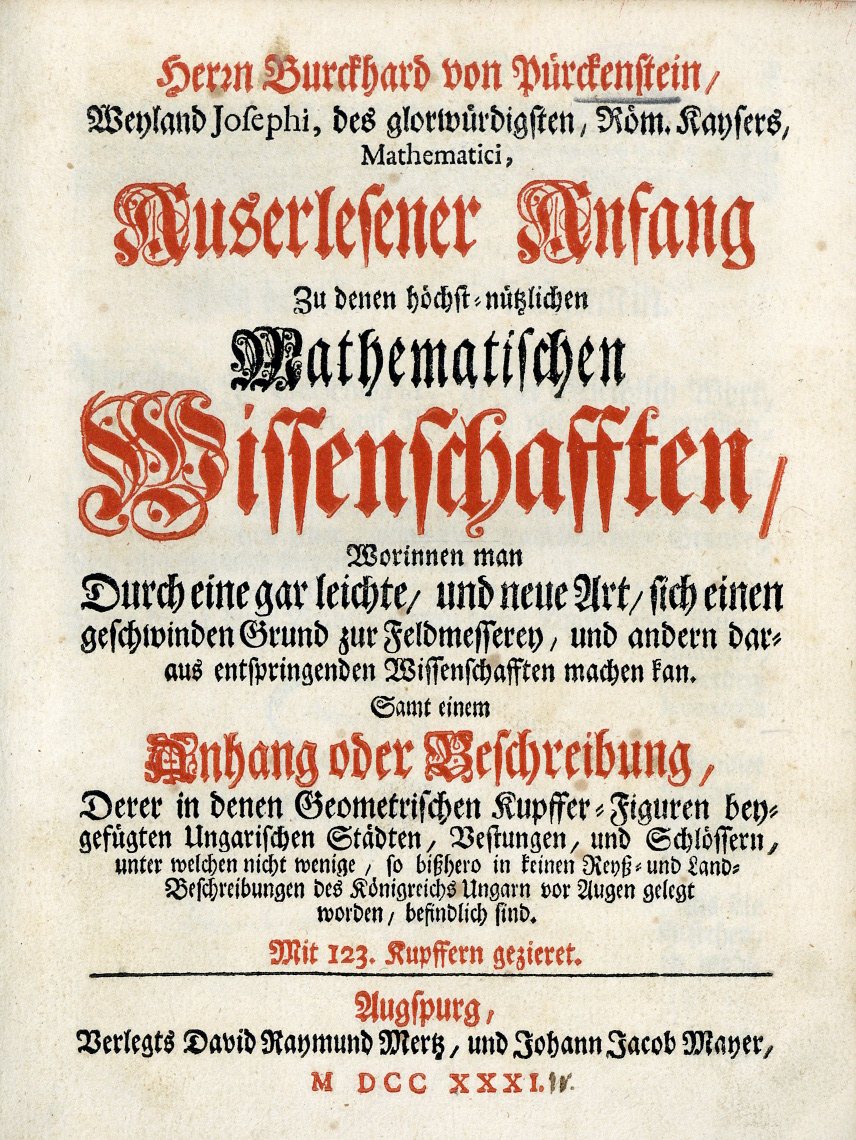 Herrn Burckhard von Pürckenstein/
Weyland Josephi, des glorwürdigsten/ Röm. Kaysers,
Mathematici,
Auserlesener Anfang
Zu denen höchst-nützlichen
Mathematischen
Wissenschafften/
Worinnen man
Durch eine gar leichte/ und neue Art/ sich einen
geschwinden Grund zur Feldmesserey/ und andern dar-
aus entspringenden Wissenschafften machen kan.
Samt einem
Anhang oder Beschreibung,
Derer in denen Geometrischen Kupffer-Figuren bey-
gefügten Ungarischen Städten, Vestungen, und Schlössern,
unter welchen nicht wenige, so bißhero in keinen Reyß- und Land-
Beschreibungen des Königreichs Ungarn vor Augen gelegt
worden/ befindlich sind.
Mit 123. Kupffern gezieret.
Augspurg,
Verlegts David Raymund Mertz, und Johann Jacob Mayer,
M DCC XXXI.